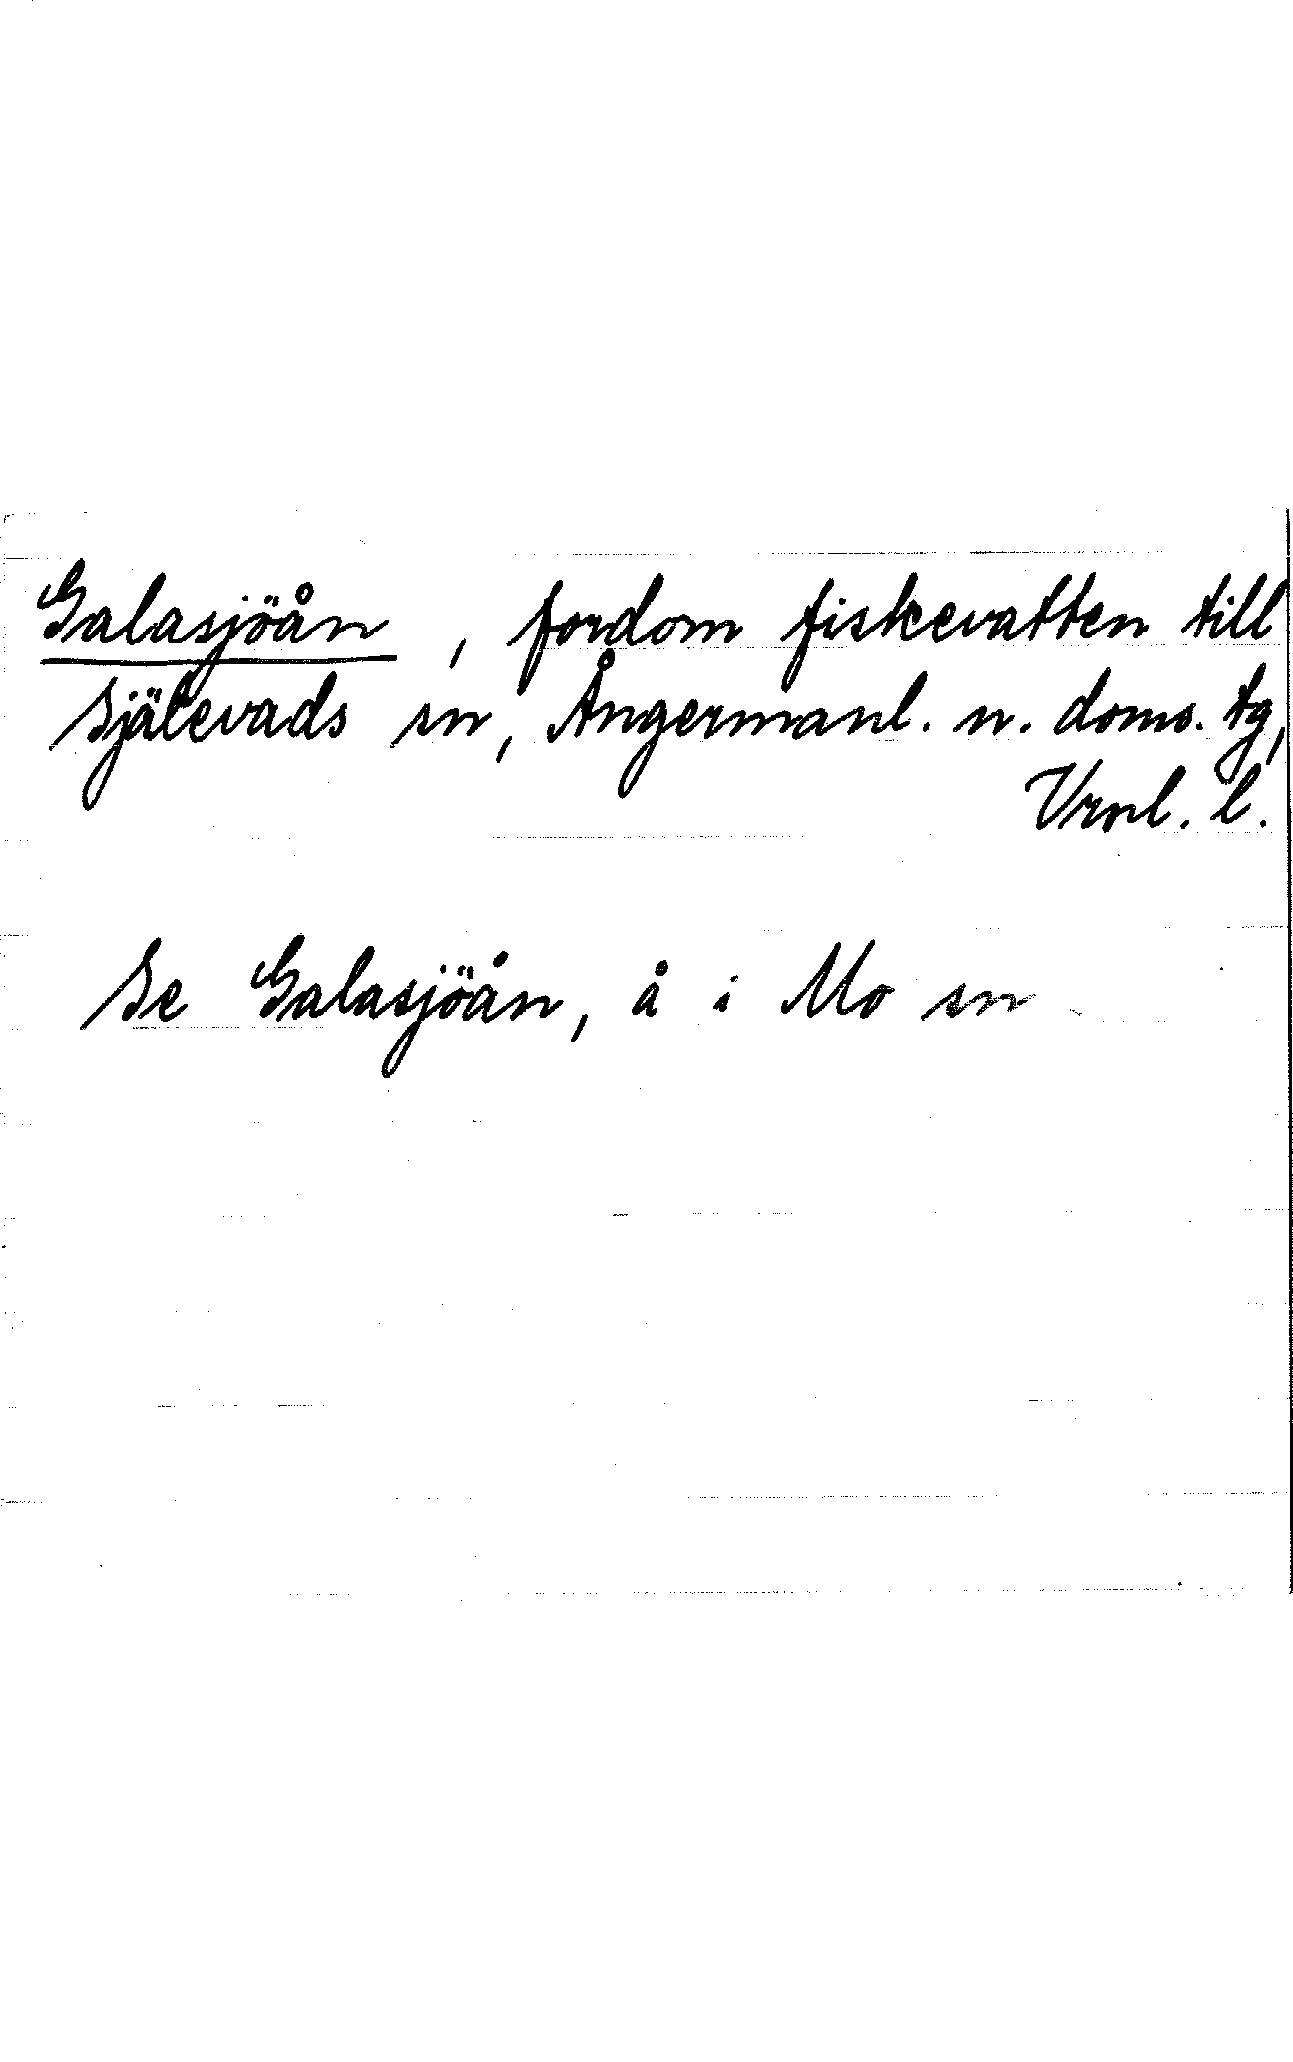 Galasjöån, fordom fiskevatten till
Själevads sn, Ångermanl. n. doms. tg,
Vrnl. l.
Se Galasjöån, å i Mo sn